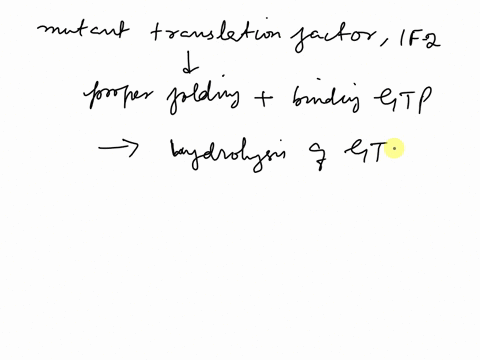 mutant transletion factor, IF2
proper folding + binding GTP
hydrolysis of GT